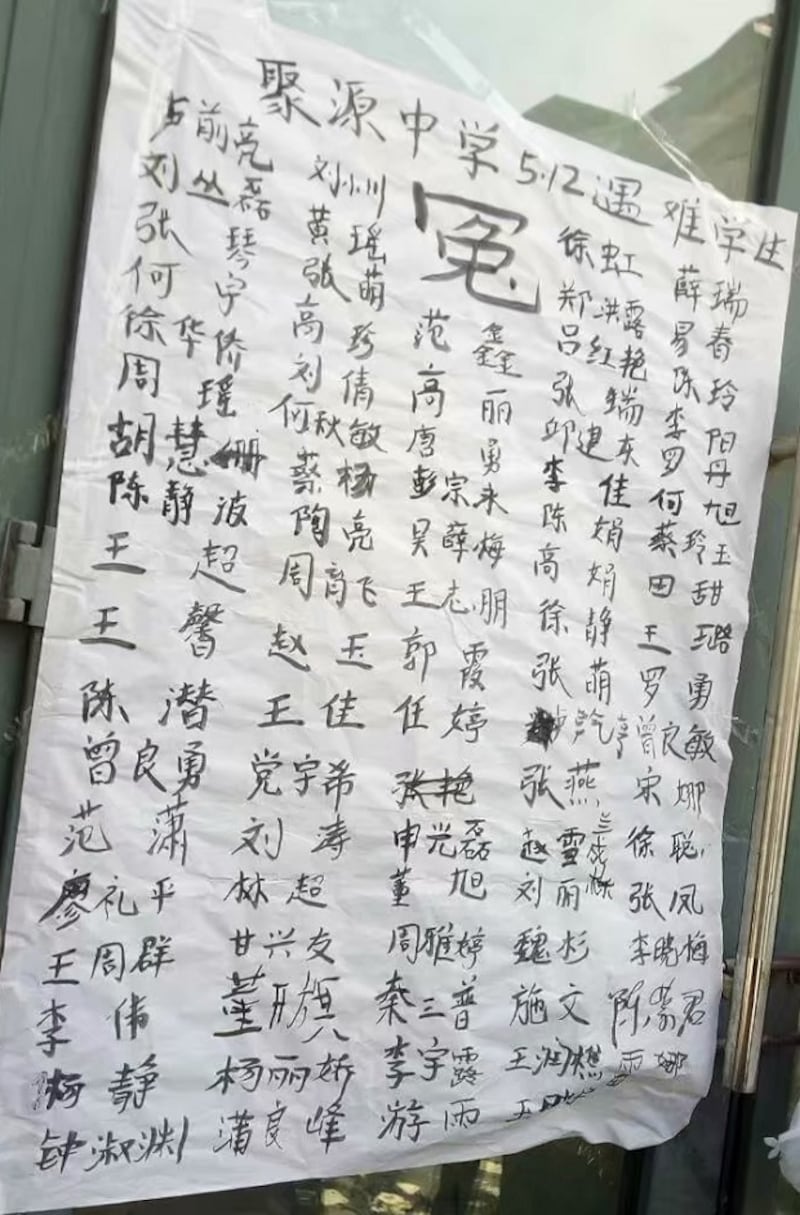 聚源中学5.12遇难学生
冤
卢前亮
刘丛磊
张琴
何宇
徐华侨
周瑶
胡慧姗
陈静波
王超
王馨
陈潜
曾良勇
范潇
廖礼平
王周群
李伟
杨静
钟淑渊
刘小川
黄瑶
张萌
高珍
刘倩
何秋敏
蔡杨
陶亮
周育飞
赵玉
王佳
党宇希
刘涛
林超
甘兴友
董开旗
杨丽娇
蒲良峰
范鑫
高丽
唐勇
彭宗来
吴薛梅
王志朋
郭霞
任婷
张艳
申兴磊
董旭
周雅婷
秦三普
李宇露
游雨
徐虹
郑洪露
吕红艳
张瑞
邱建东
李佳
陈娟
高娟
徐静
张萌
张燕
赵雪
刘丽
魏杉
施文
王润樵
王
薛瑞
易春
陈玲
李阳
罗丹
何旭
蔡玲玉
田甜
王璐
罗勇
曾良敏
宋娜
徐聪
张凤
李晓梅
陈蒙君
雨娜